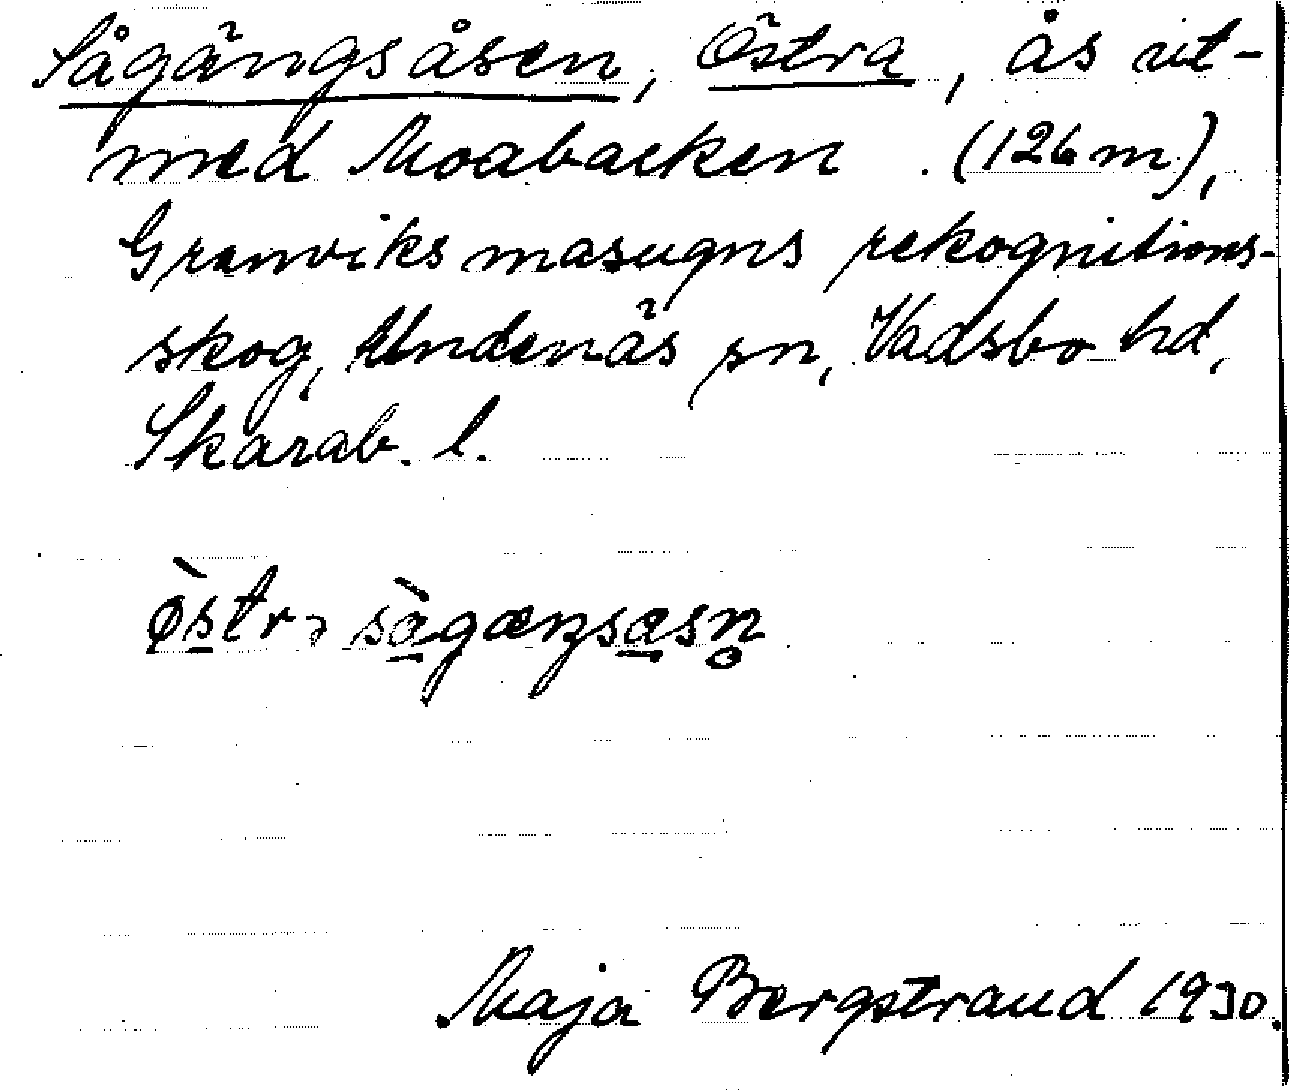 Sågängsåsen, Östra, ås ut-
med Moabacken. (126 m),
Granviks masugns rekognitions-
skog, Undenäs sn, Vadsbo hd,
Skarab. l.
Maja Bergstrand 1930.